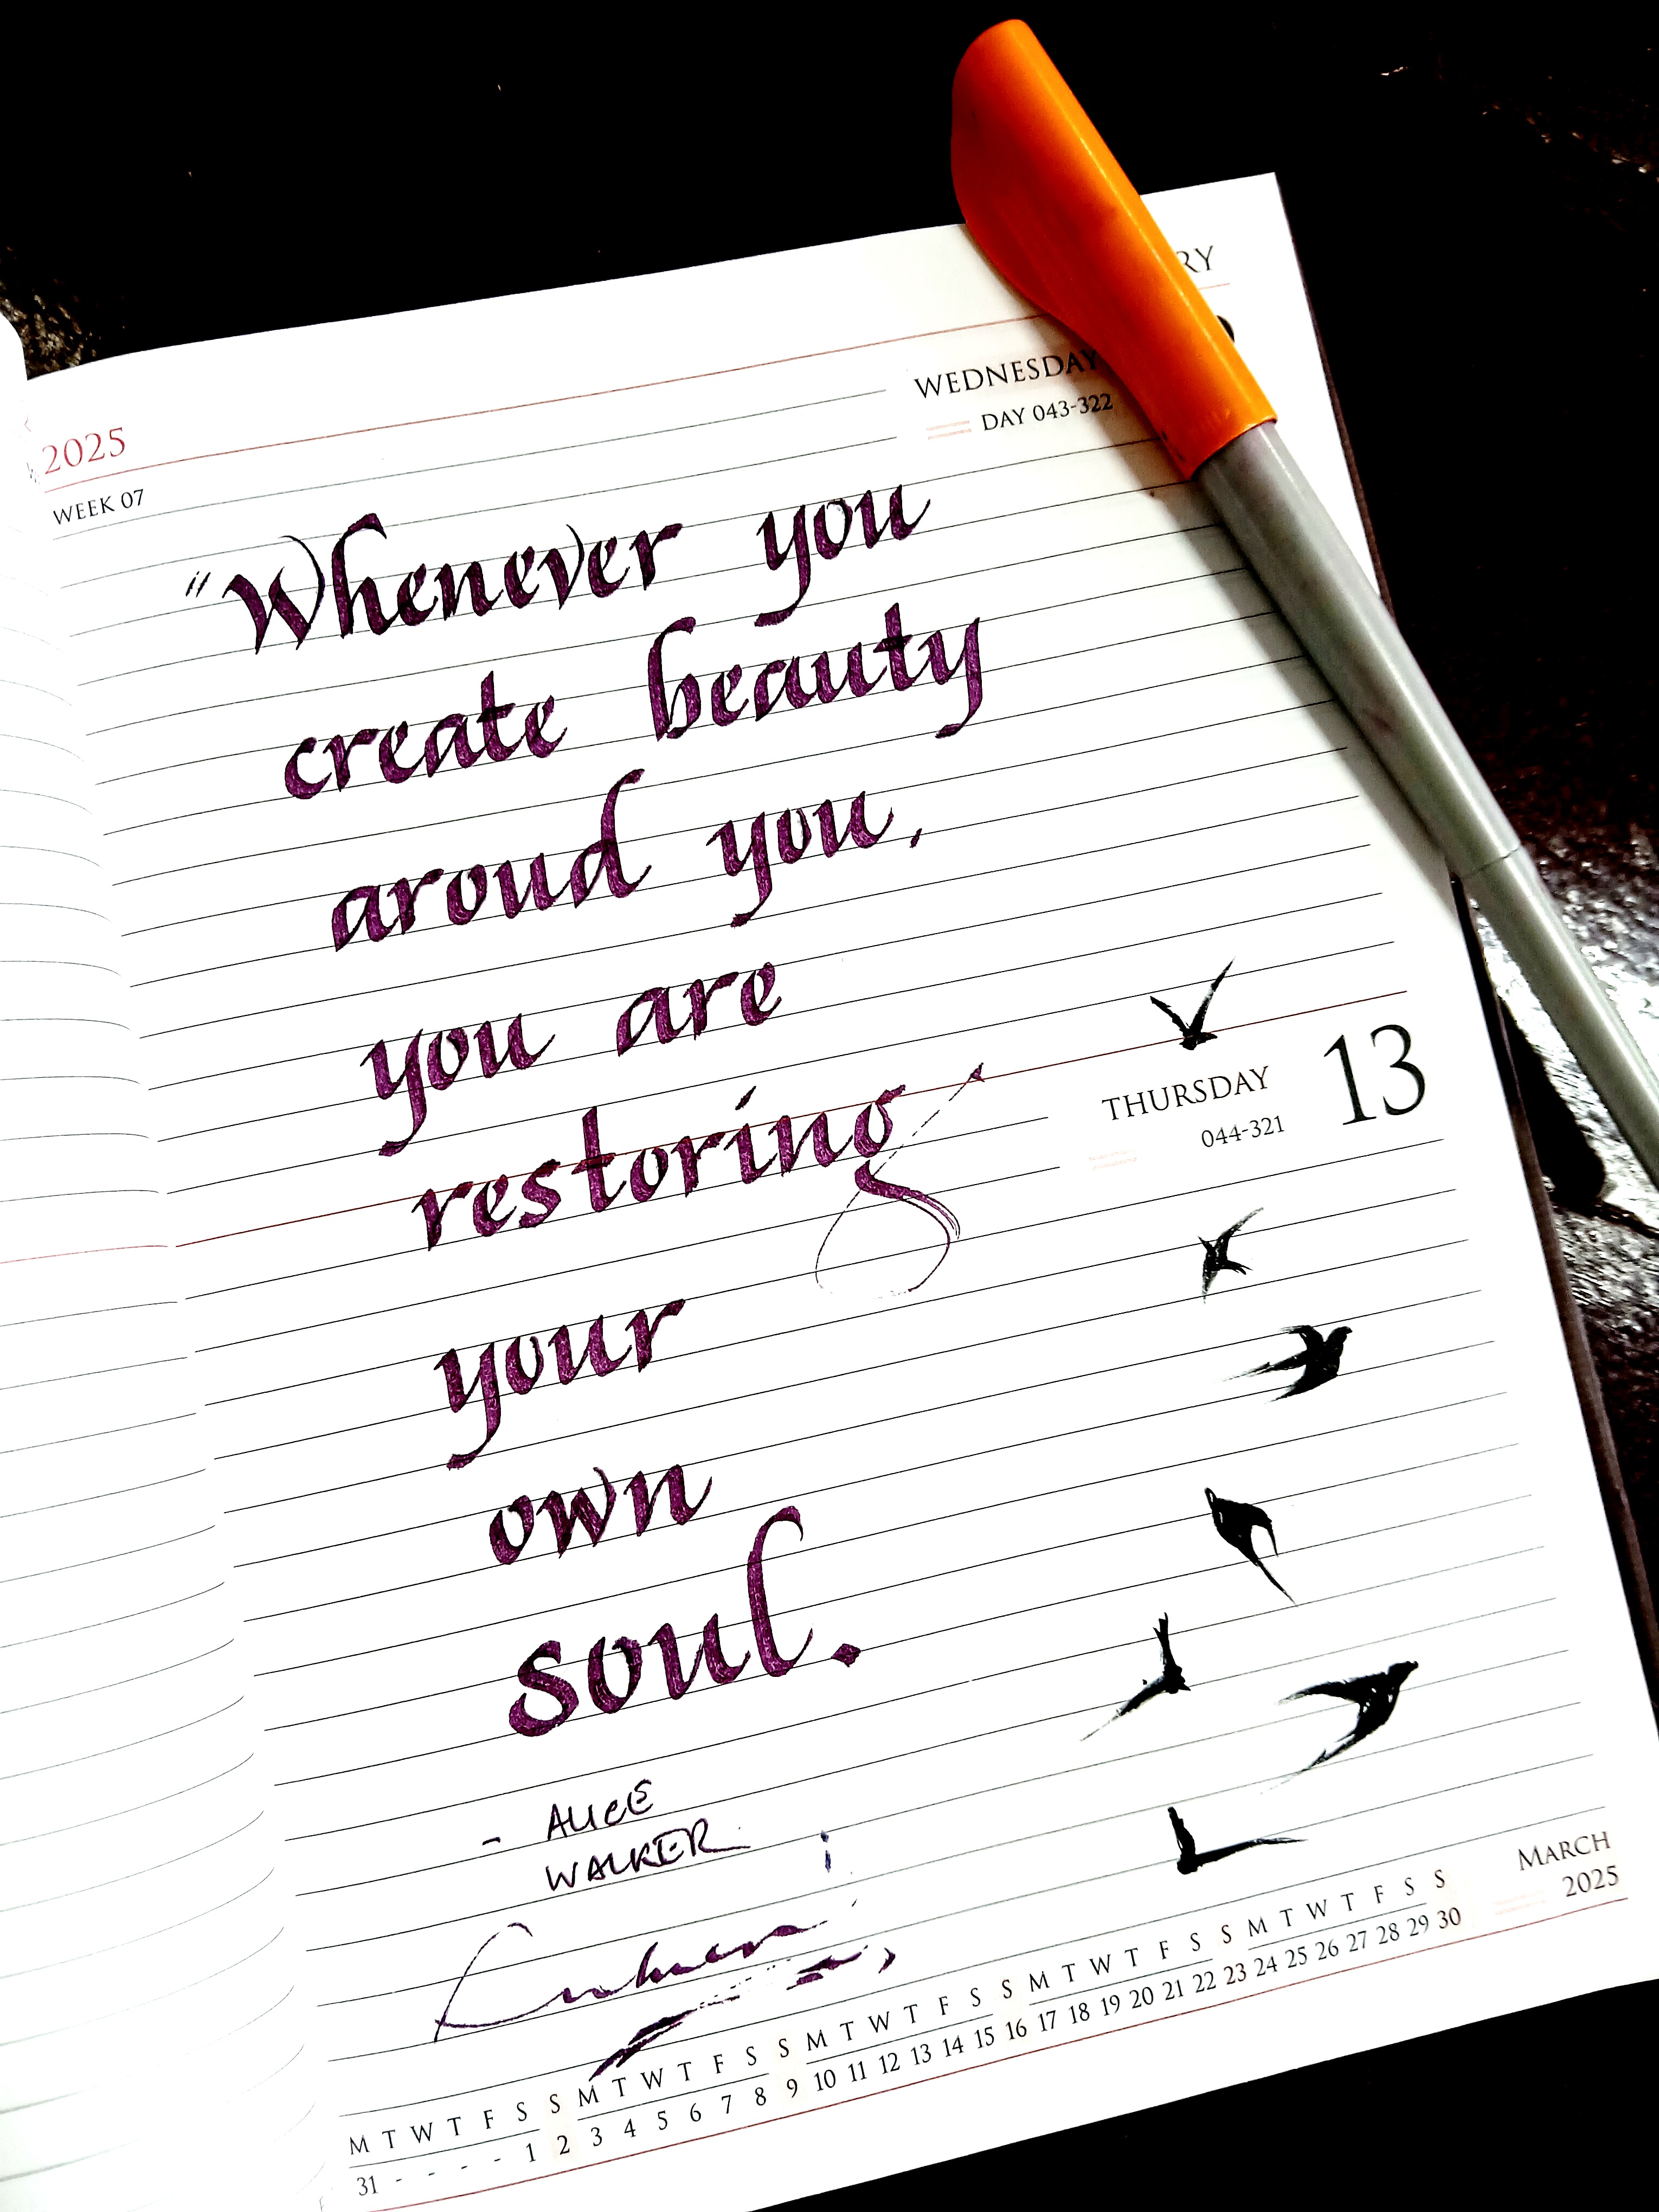 RY
2025
WEDNESDAY
WEEK 07
DAY 043-322
"Whenever you
create beauty
aroud you,
you are
restoring
THURSDAY 13
044-321
your
own
soul.
- ALICE
WALKER
MARCH
2025
M T W T F S S M T W T F S S M T W T F S S M T W T F S S M T W T F S S
31 - - - - 1 2 3 4 5 6 7 8 9 10 11 12 13 14 15 16 17 18 19 20 21 22 23 24 25 26 27 28 29 30